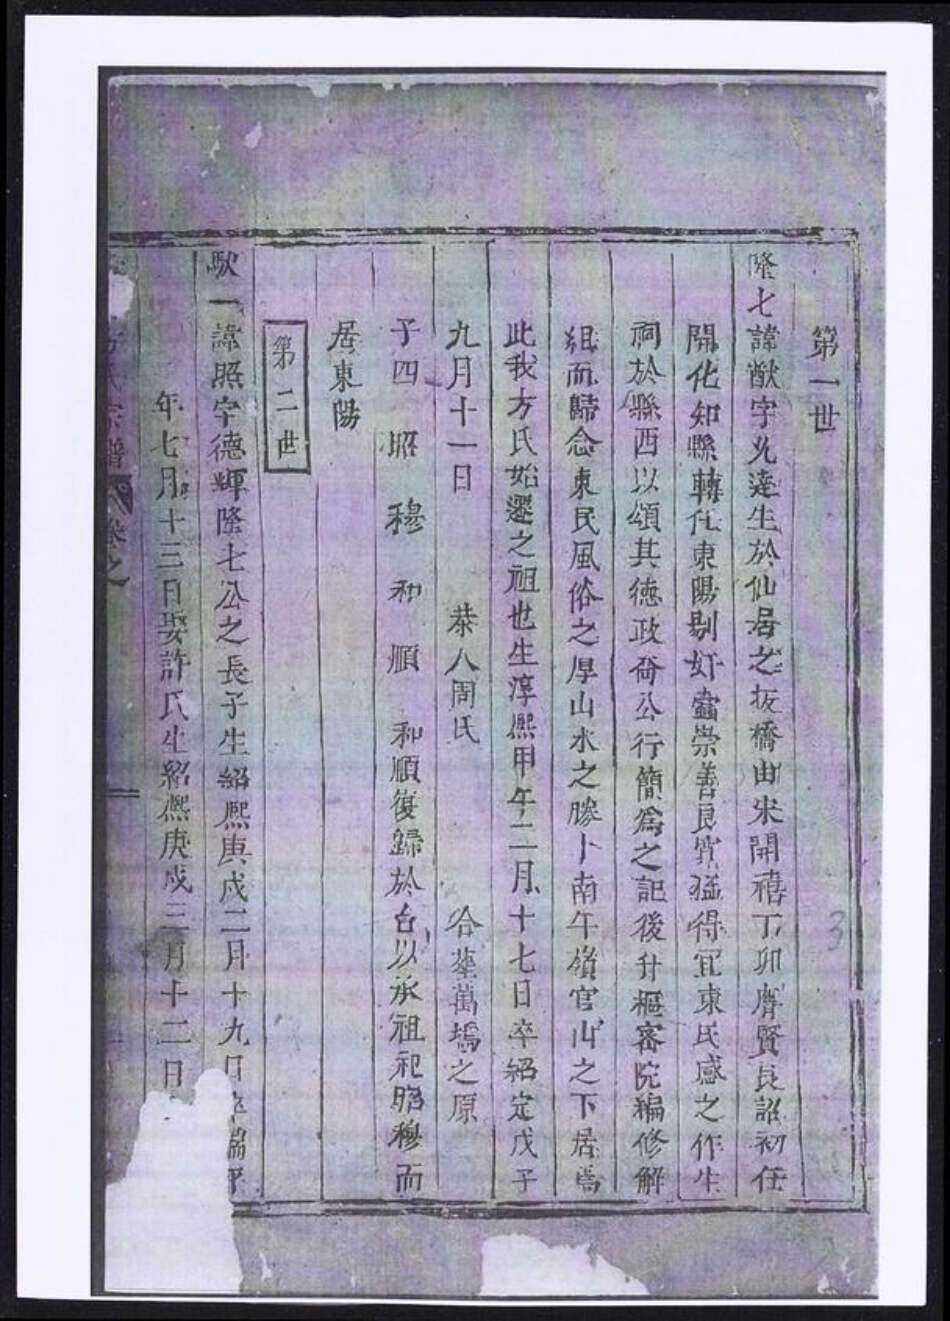 第一世
隆七諱猷字允達生於仙居之板橋由宋開禧丁卯膺賢良詔初任
開化知縣轉任東陽剔奸蠹崇善良寬猛得宜東民感之作生
祠於縣西以頌其德政喬公行簡為之記後升樞密院編修解
組而歸念東民風俗之厚山水之勝卜南午嶺官山之下居焉
此我方氏始遷之祖也生淳熙甲午二月十七日卒紹定戊子
九月十一日 恭八周氏 合塟萬塢之原
子四 昭 穆 和 順 和順復歸於台以承祖祀昭穆而
居東陽
第二世
猷一諱照字德輝隆七公之長子生紹熙庚戌二月十九日卒端平
年七月十三日娶許氏生紹熙庚戌三月十二日
方氏宗譜 卷之
3